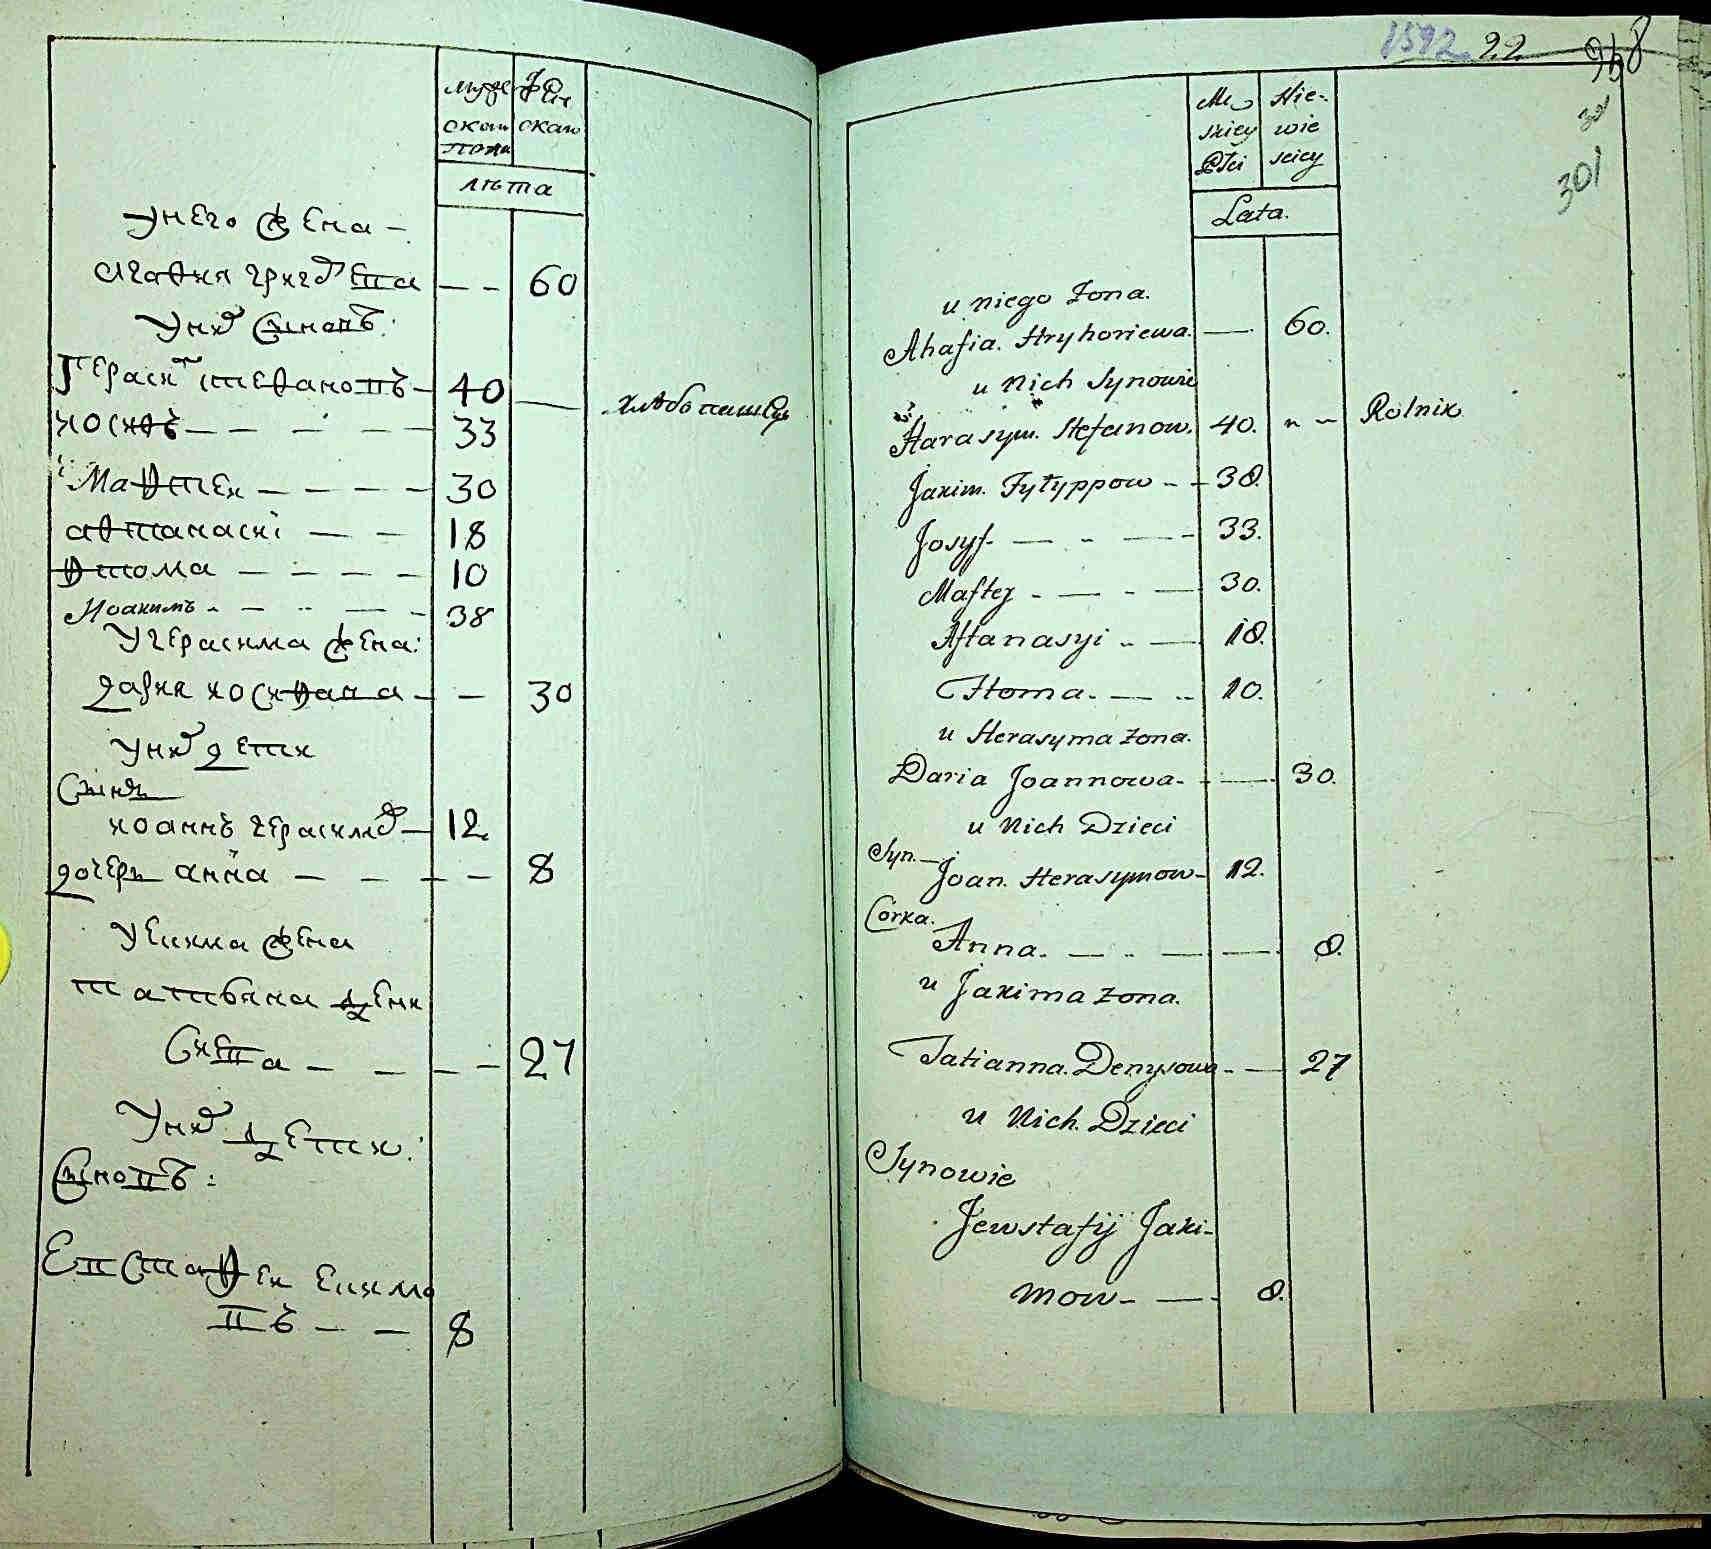 Муже Жен
скаго скаго
пола
лѣта
У него жена -
Агафия Григорева - - 60
У них сыновъ:
Герасим Стефановъ - 40 — Хлѣбопашец
Иосифъ - - - - - 33
Мафтеи - - - - 30
Афтанасиі - - - 18
Фтома - - - - 10
Иоакимъ - - - - - 38
У Герасима жена:
Дария Иосифава - - 30
У них дети
Сынъ
Иоаннъ Герасимов - 12
дочерь Анна - - - - 8
У Екима жена
Татьяна Дени
Сева - - - - 27
У них дети:
Сыновъ:
Евстафеи Екимо
въ - - 8
1592 22 968
30
301
Mę- Nie-
skiey wie
Płci sciey
Lata.
u niego Zona.
Ahafia. Hryhoriewa. — 60.
u nich Synowie
Harasym. Stefanow. 40. - - Rolnik
Jakim. Fyłyppow - - 38.
Josyf. — - — - 33.
Maftey - — - — 30.
Aftanasyi - — 18.
Homa. — - 10.
u Herasyma zona.
Daria Joannowa - — 30.
u Nich Dzieci
Syn. —
Joan. Herasymow - 12.
Córka.
Anna. — - — — 8.
u Jakima zona.
Tatianna. Denysowa - — 27
u Nich. Dzieci
Synowie
Jewstafij Jaki-
mow - — - 8.